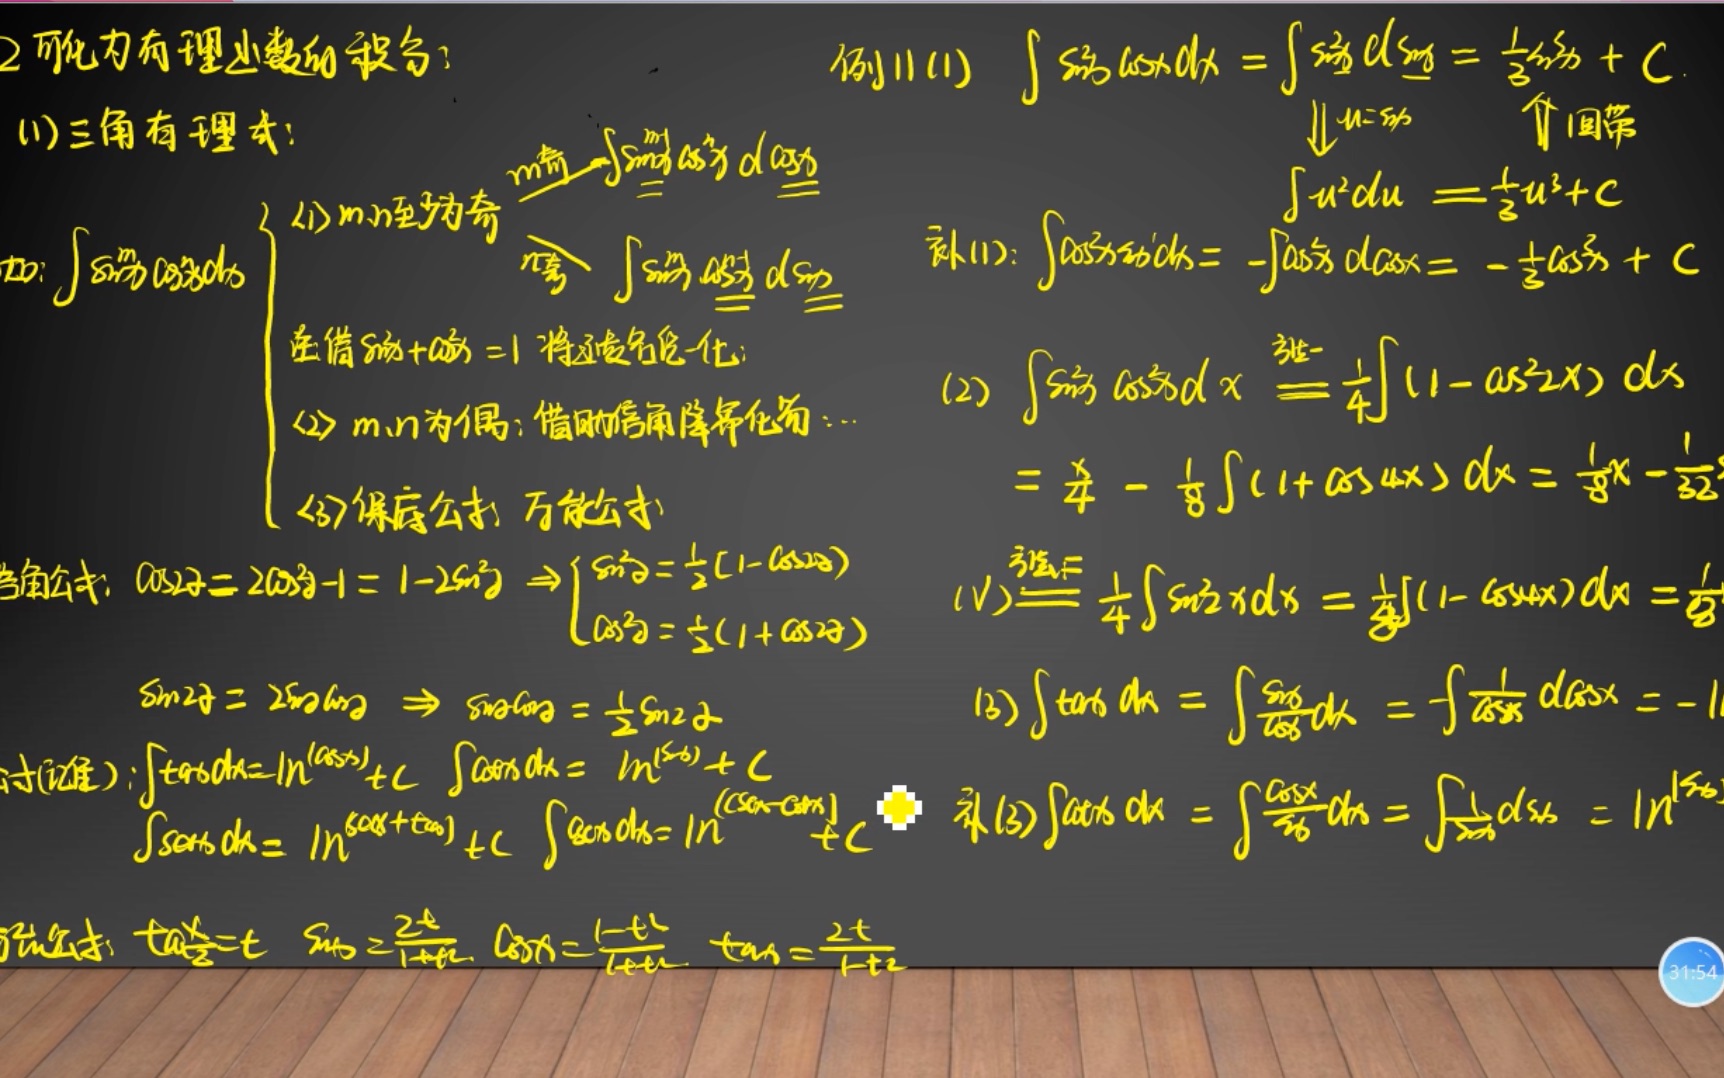 2 可化为有理函数的积分:
(1) 三角有理式:
如: ∫sinᵐx cosⁿx dx
<1> m.n至少为奇
m奇 ∫sinᵐ⁻¹x cosⁿx d cosx
n奇 ∫sinᵐx cosⁿ⁻¹x d sinx
在借 sin²x + cos²x = 1 将还变名统一化;
<2> m.n为偶; 借助倍角降幂化简: …
<3> 保底公式; 万能公式;
倍角公式: cos2α = 2cos²α - 1 = 1 - 2sin²α ⇒ { sin²α = 1/2 (1 - cos2α)
cos²α = 1/2 (1 + cos2α)
sin2α = 2sinα cosα ⇒ sinα cosα = 1/2 sin2α
公式(记准): ∫tanx dx = ln|cosx| + C ∫cotx dx = ln|sinx| + C
∫secx dx = ln|secx + tanx| + C ∫cscx dx = ln|cscx - cotx| + C
万能公式: tan x/2 = t sinx = 2t/(1+t²) cosx = (1-t²)/(1+t²) tanx = 2t/(1-t²)
例11 (1) ∫sin²x cosx dx = ∫sin²x d sinx = 1/3 sin³x + C.
⇓ u = sinx ⇑ 回带
∫u² du = 1/3 u³ + C
补(1): ∫cos²x sin¹x dx = -∫cos²x d cosx = -1/3 cos³x + C
(2) ∫sin²x cos²x dx 方法一 = 1/4 ∫(1 - cos²2x) dx
= x/4 - 1/8 ∫(1 + cos4x) dx = 1/8 x - 1/32
(√) 方法二 = 1/4 ∫sin²2x dx = 1/8 ∫(1 - cos4x) dx = 1/8
(3) ∫tanx dx = ∫ sinx/cosx dx = -∫ 1/cosx d cosx = -l
补(3) ∫cotx dx = ∫ cosx/sinx dx = ∫ 1/sinx d sinx = ln|sinx|
31:54